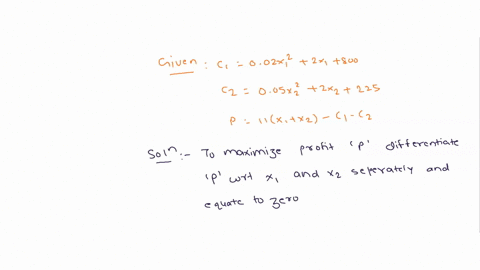 Given : C₁ = 0.02x₁² + 2x₁ + 800
C₂ = 0.05x₂² + 2x₂ + 225
P = 11(x₁+x₂) - C₁-C₂
Solⁿ:- To maximize profit 'p' differentiate
'p' wrt x₁ and x₂ seperately and
equate to zero